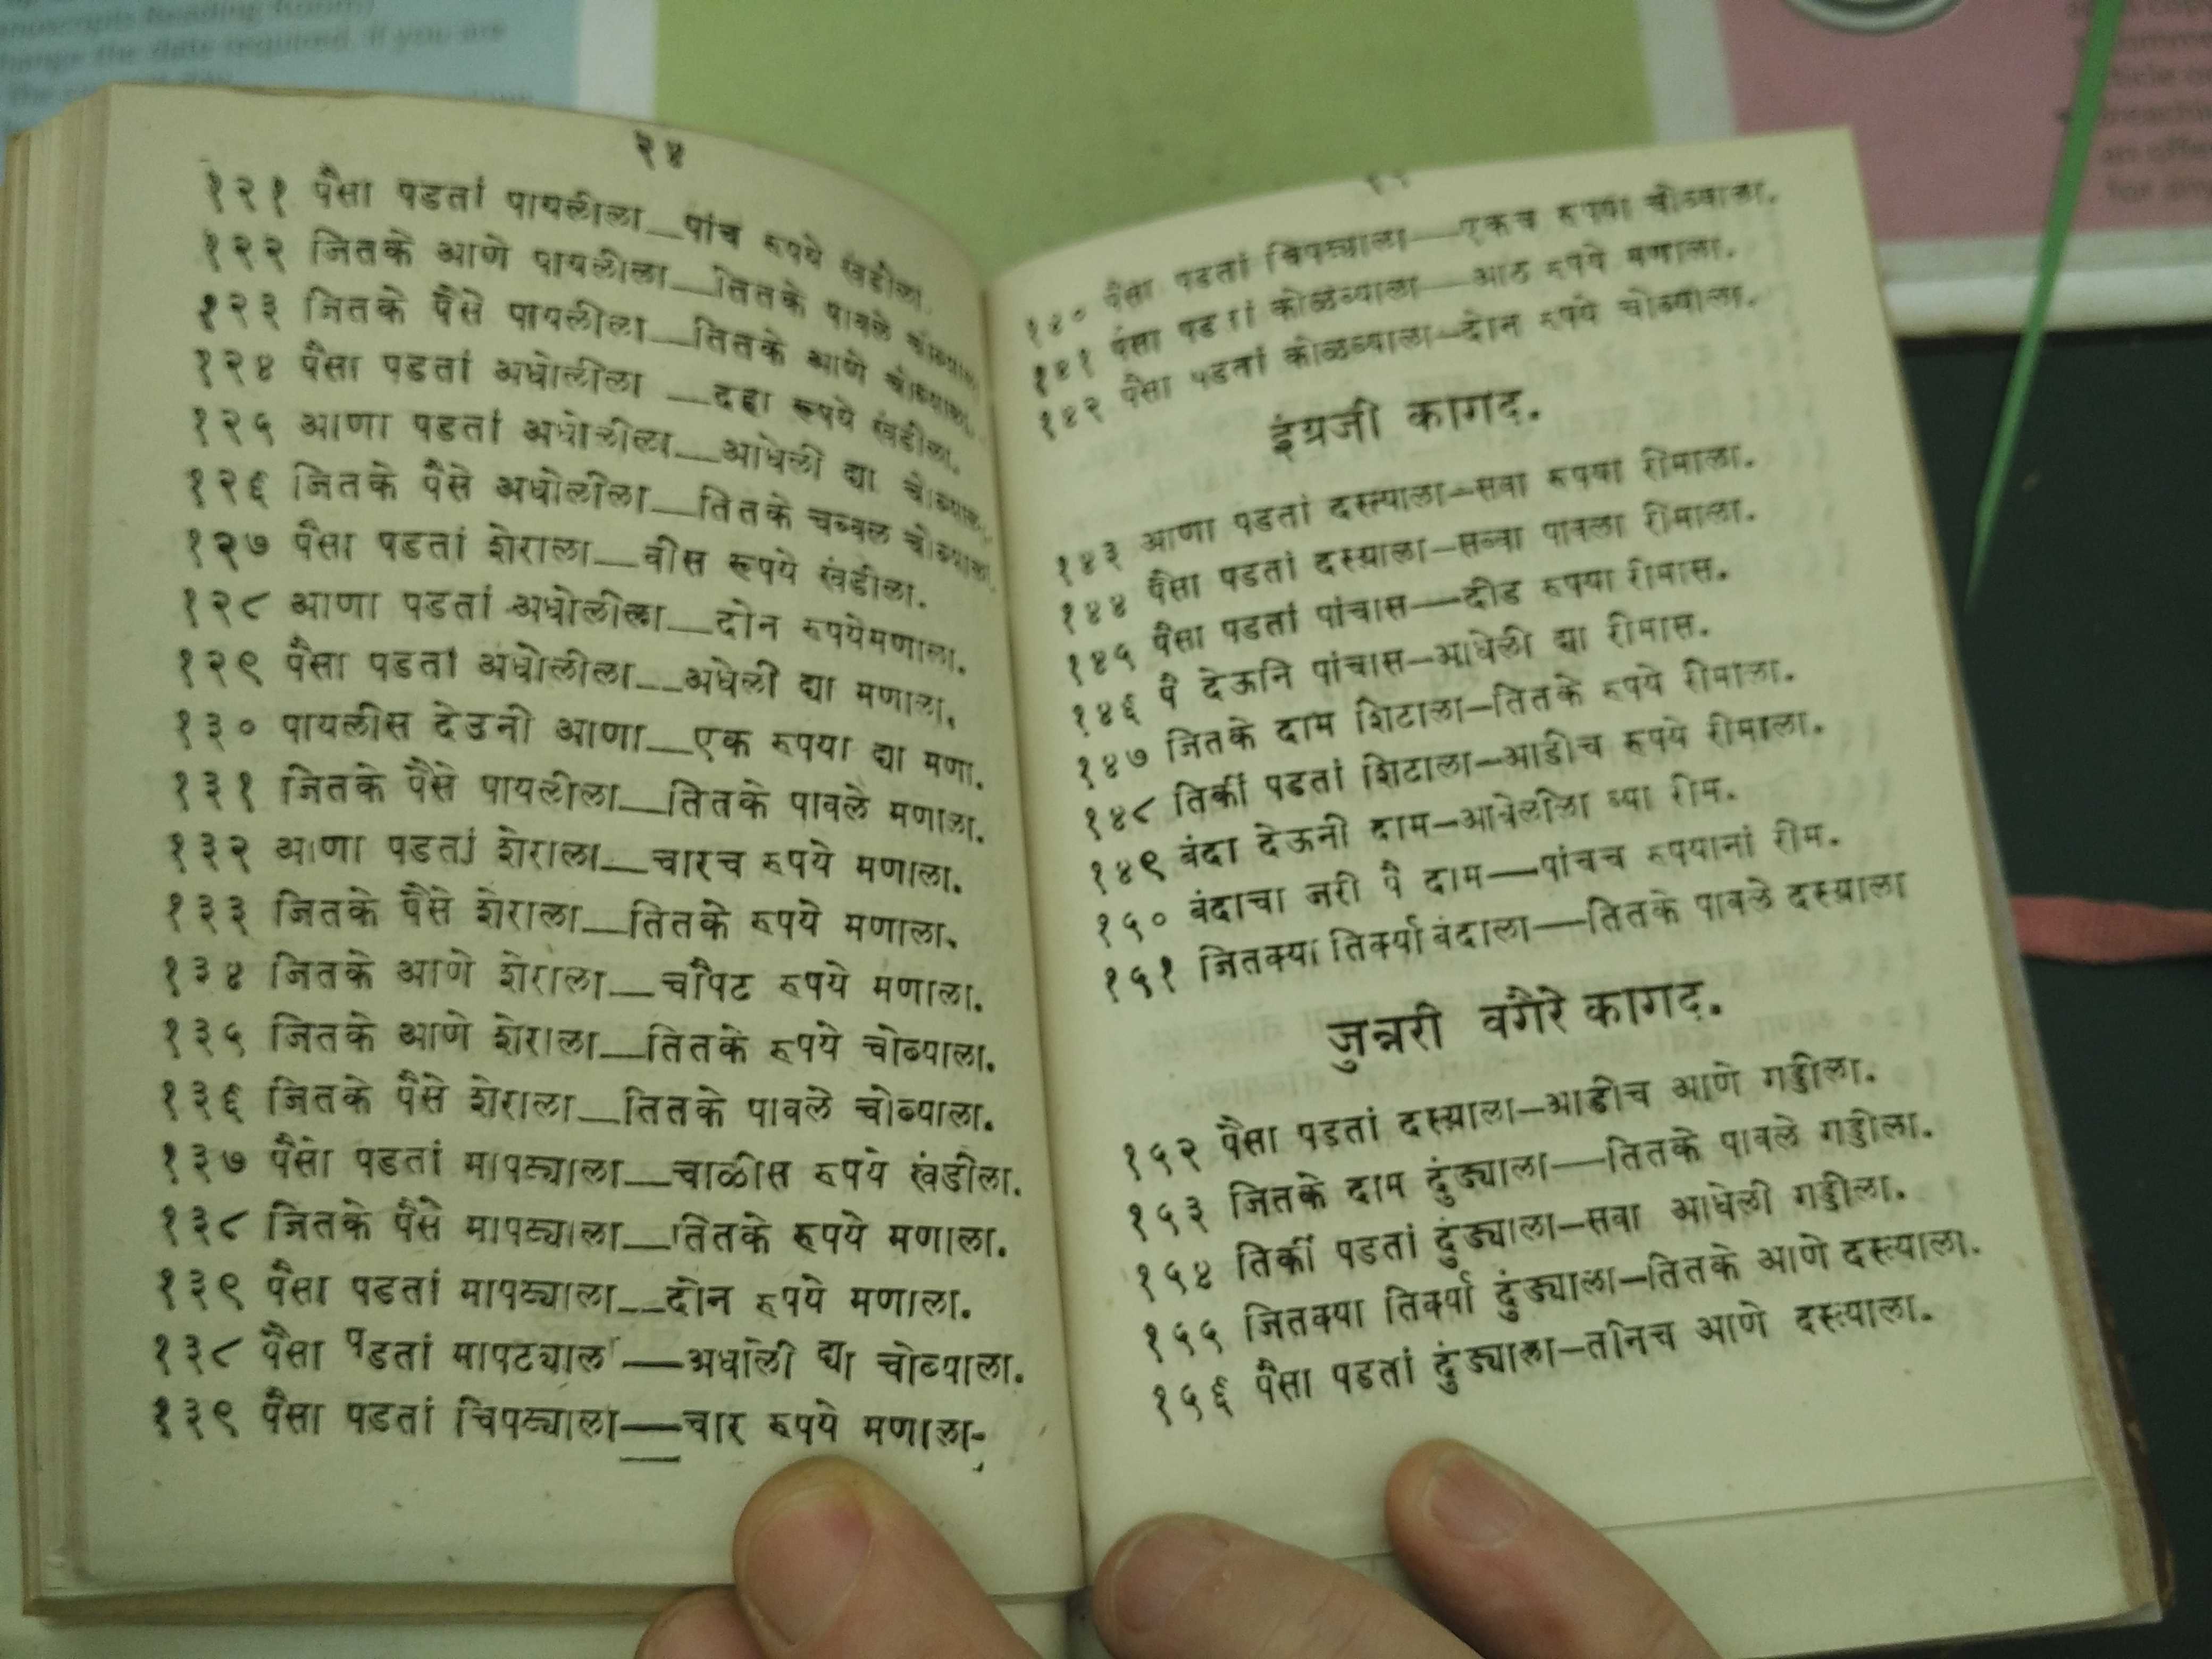 anuscripts Reading Room)
hange the date required, if you are
२४
१२१ पैसा पडतां पायलीला—पांच रुपये खंडीला.
१२२ जितके आणे पायलीला—तितके पावले चोब्याला.
१२३ जितके पैसे पायलीला—तितके आणे चोब्याला.
१२४ पैसा पडतां अधोलीला —दहा रूपये खंडीला.
१२५ आणा पडतां अधोलीला—आधेली द्या चोब्याला.
१२६ जितके पैसे अधोलीला—तितके चव्वल चोब्याला.
१२७ पैसा पडतां शेराला—वीस रूपये खंडीला.
१२८ आणा पडतां अधोलीला—दोन रुपयेमणाला.
१२९ पैसा पडतां अधोलीला—अधेली द्या मणाला.
१३० पायलीस देउनी आणा—एक रुपया द्या मणा.
१३१ जितके पैसे पायलीला—तितके पावले मणाला.
१३२ आणा पडतां शेराला—चारच रुपये मणाला.
१३३ जितके पैसे शेराला—तितके रुपये मणाला.
१३४ जितके आणे शेराला—चौपट रुपये मणाला.
१३५ जितके आणे शेराला—तितके रुपये चोब्याला.
१३६ जितके पैसे शेराला—तितके पावले चोब्याला.
१३७ पैसा पडतां मापट्याला—चाळीस रुपये खंडीला.
१३८ जितके पैसे मापट्याला—तितके रूपये मणाला.
१३९ पैसा पडतां मापट्याला—दोन रुपये मणाला.
१३८ पैसा पडतां मापट्याला—अधोली द्या चोब्याला.
१३९ पैसा पडतां चिपट्याला—चार रुपये मणाला.
१४० पैसा पडतां चिपट्याला—एकच रुपया चोब्याला.
१४१ पैसा पडतां कोळव्याला—आठ रुपये मणाला.
१४२ पैसा पडतां कोळव्याला—दोन रुपये चोब्याला.
इंग्रजी कागद.
१४३ आणा पडतां दस्त्याला—सवा रुपया रीमाला.
१४४ पैसा पडतां दस्त्याला—सव्वा पावला रीमाला.
१४५ पैसा पडतां पांचास—दीड रुपया रीमास.
१४६ पै देऊनि पांचास—आधेली द्या रीमास.
१४७ जितके दाम शिटाला—तितके रुपये रीमाला.
१४८ तिर्की पडतां शिटाला—आडीच रुपये रीमाला.
१४९ बंदा देऊनी दाम—आधेलीला घ्या रीम.
१५० बंदाचा जरी पै दाम—पांचच रुपयानां रीम.
१५१ जितक्या तिर्क्या बंदाला—तितके पावले दस्त्याला
जुन्नरी वगैरे कागद.
१५२ पैसा पडतां दस्त्याला—आडीच आणे गड्डीला.
१५३ जितके दाम दुंड्याला—तितके पावले गड्डीला.
१५४ तिर्की पडतां दुंड्याला—सवा आधेली गड्डीला.
१५५ जितक्या तिर्क्या दुंड्याला—तितके आणे दस्त्याला.
१५६ पैसा पडतां दुंड्याला—तीनच आणे दस्त्याला.